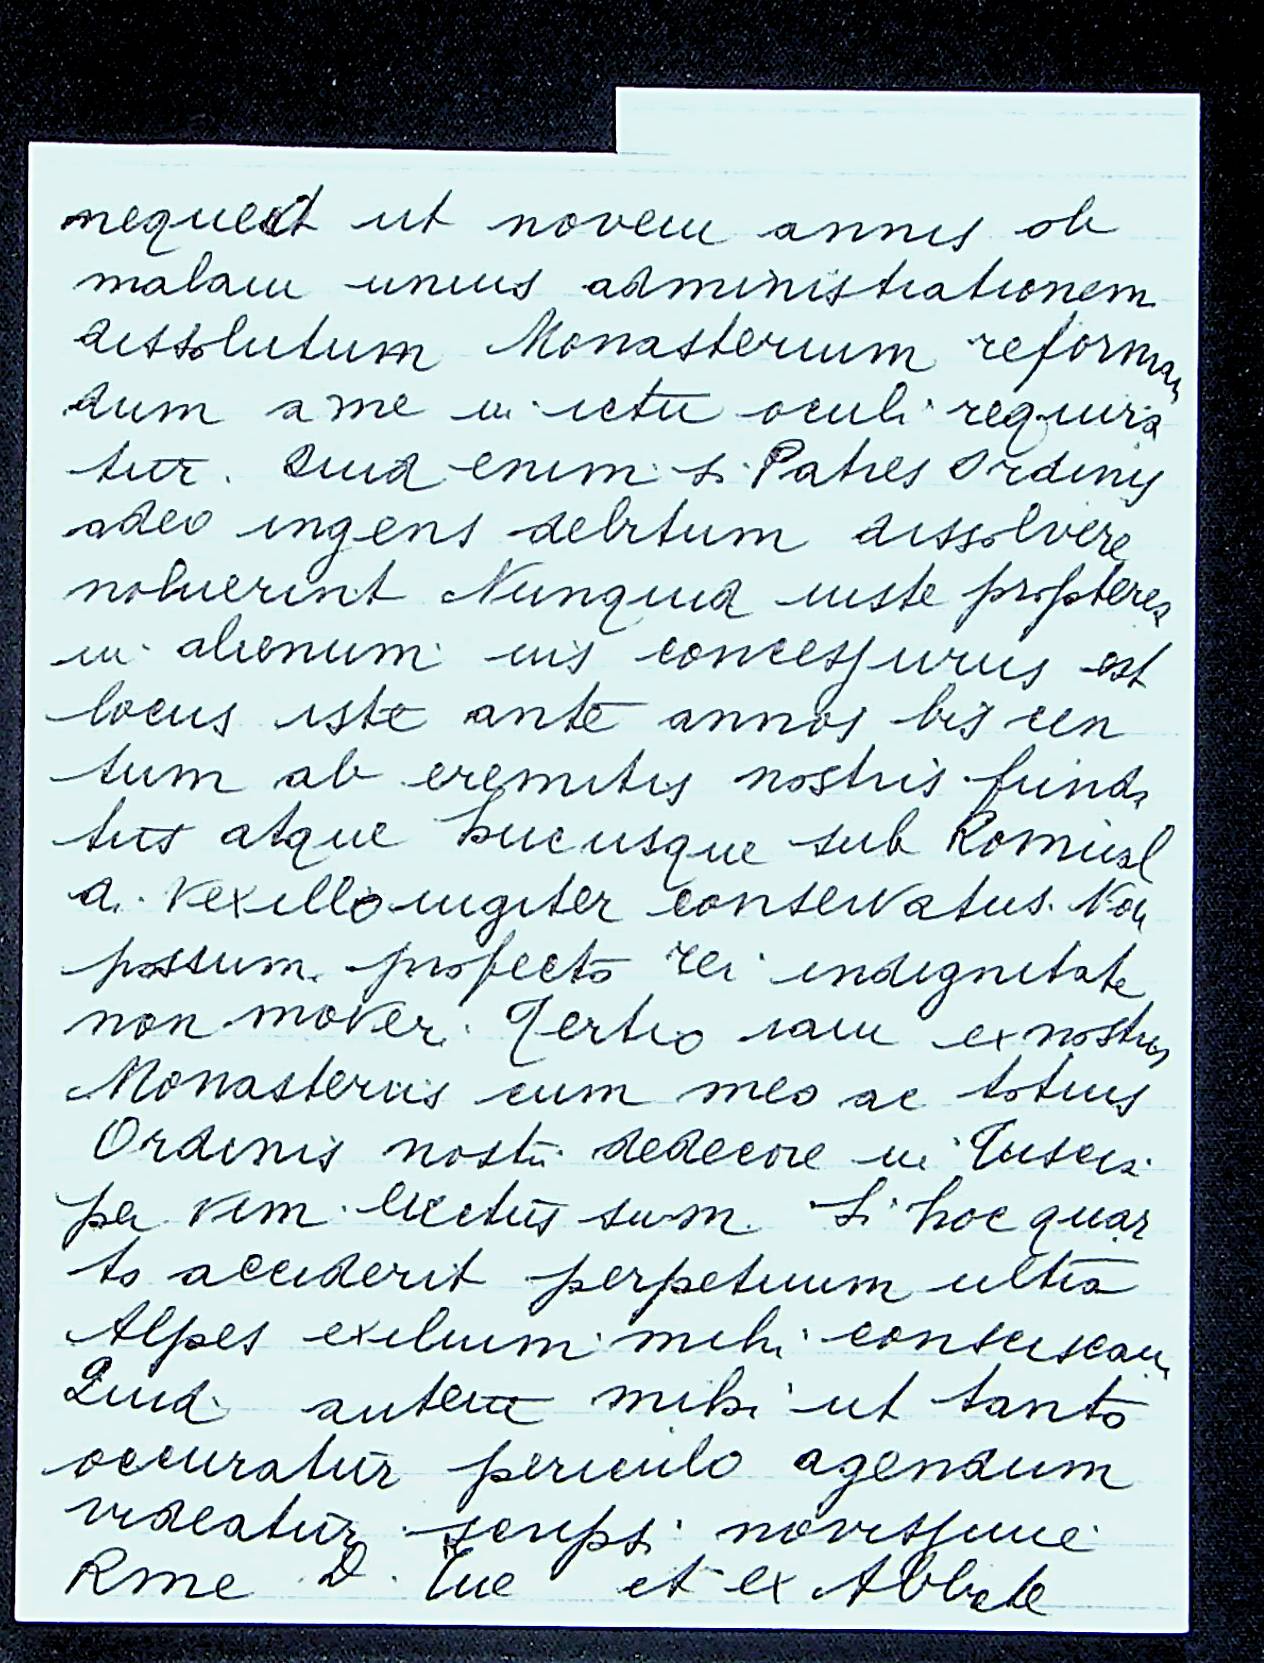 nequeat ut novem annis ob
malam unius administrationem
dissolutum Monasterium reforman
dum a me in ictu oculi requira
tur. Quid enim si Patres Ordinis
adeo ingens debitum dissolvere
noluerint Nunquid iuste propterea
in alienum ius concessurus est
locus iste ante annos bis cen
tum ab eremitis nostris funda
tus atque hucusque sub Romual
di vexillo iugiter conservatus. Non
possum profecto rei indignitate
non moveri. Tertio iam ex nostris
Monasteriis cum meo ac totius
Ordinis nostri dedecore in Tuscia
per vim eiectus sum. Si hoc quar
to acciderit perpetuum ultra
Alpes exilium mihi consciscam
Quid autem mihi ut tanto
occuratur periculo agendum
videatur scripsi novissime
Rme D. Tue et ex Abbate